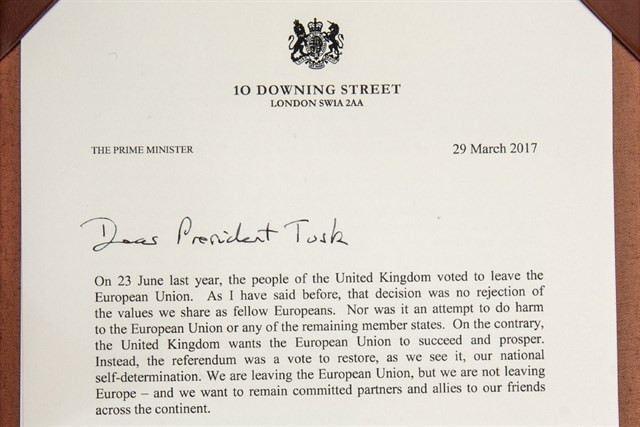 10 DOWNING STREET
LONDON SW1A 2AA
THE PRIME MINISTER 29 March 2017
Dear President Tusk
On 23 June last year, the people of the United Kingdom voted to leave the
European Union. As I have said before, that decision was no rejection of
the values we share as fellow Europeans. Nor was it an attempt to do harm
to the European Union or any of the remaining member states. On the contrary,
the United Kingdom wants the European Union to succeed and prosper.
Instead, the referendum was a vote to restore, as we see it, our national
self-determination. We are leaving the European Union, but we are not leaving
Europe – and we want to remain committed partners and allies to our friends
across the continent.